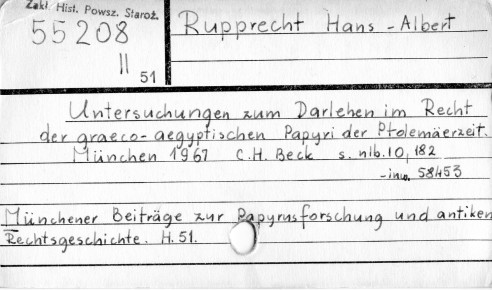 Zakł. Hist. Powsz. Staroż.
55208
II
51
Rupprecht Hans-Albert
Untersuchungen zum Darlehen im Recht
der graeco-aegyptischen Papyri der Ptolemäerzeit.
München 1967 C.H. Beck s. nlb. 10, 182
-inw. 58453
Münchener Beiträge zur Papyrusforschung und antiken
Rechtsgeschichte. H. 51.